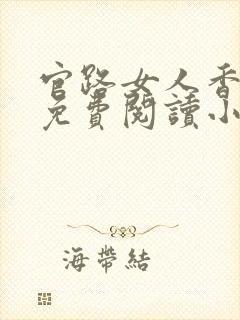 官路女人香
免費閱讀小
海帶結